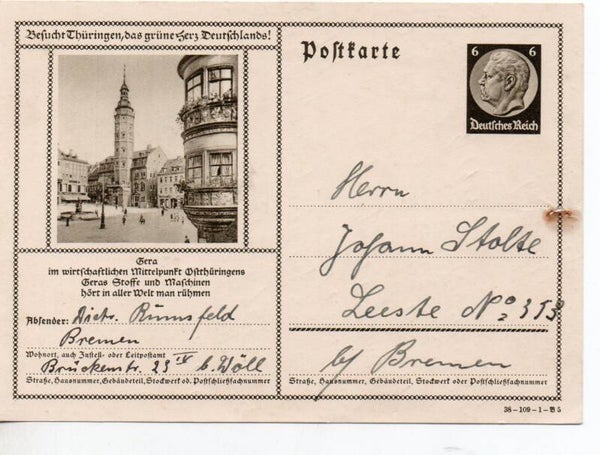 Besucht Thüringen, das grüne Herz Deutschlands!
Gera
im wirtschaftlichen Mittelpunkt Ostthüringens
Geras Stoffe und Maschinen
hört in aller Welt man rühmen
Absender: Dietr. Rumsfeld
Bremen
Wohnort, auch Zustell- oder Leitpostamt
Brückenstr. 23 IV b. Wöll
Straße, Hausnummer, Gebäudeteil, Stockwerk od. Postschließfachnummer
Postkarte
6 6
Deutsches Reich
Herrn
Johann Stolte
Leeste No. 313
b/ Bremen
Straße, Hausnummer, Gebäudeteil, Stockwerk oder Postschließfachnummer
38-109-1-B5